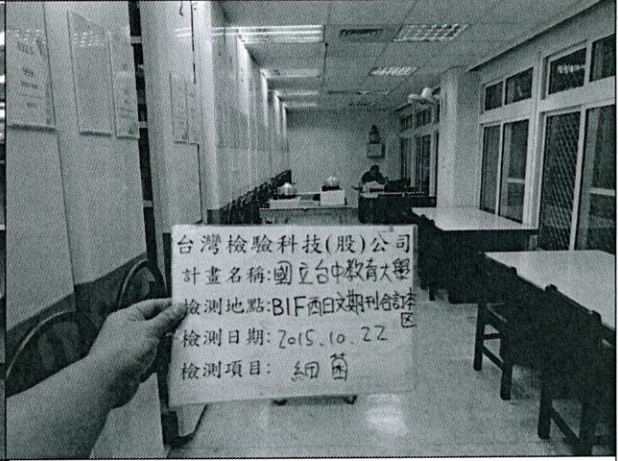 台灣檢驗科技(股)公司
計畫名稱:國立台中教育大學
檢測地點:B1F西日文期刊合訂本区
檢測日期:2015.10.22
檢測項目:細菌